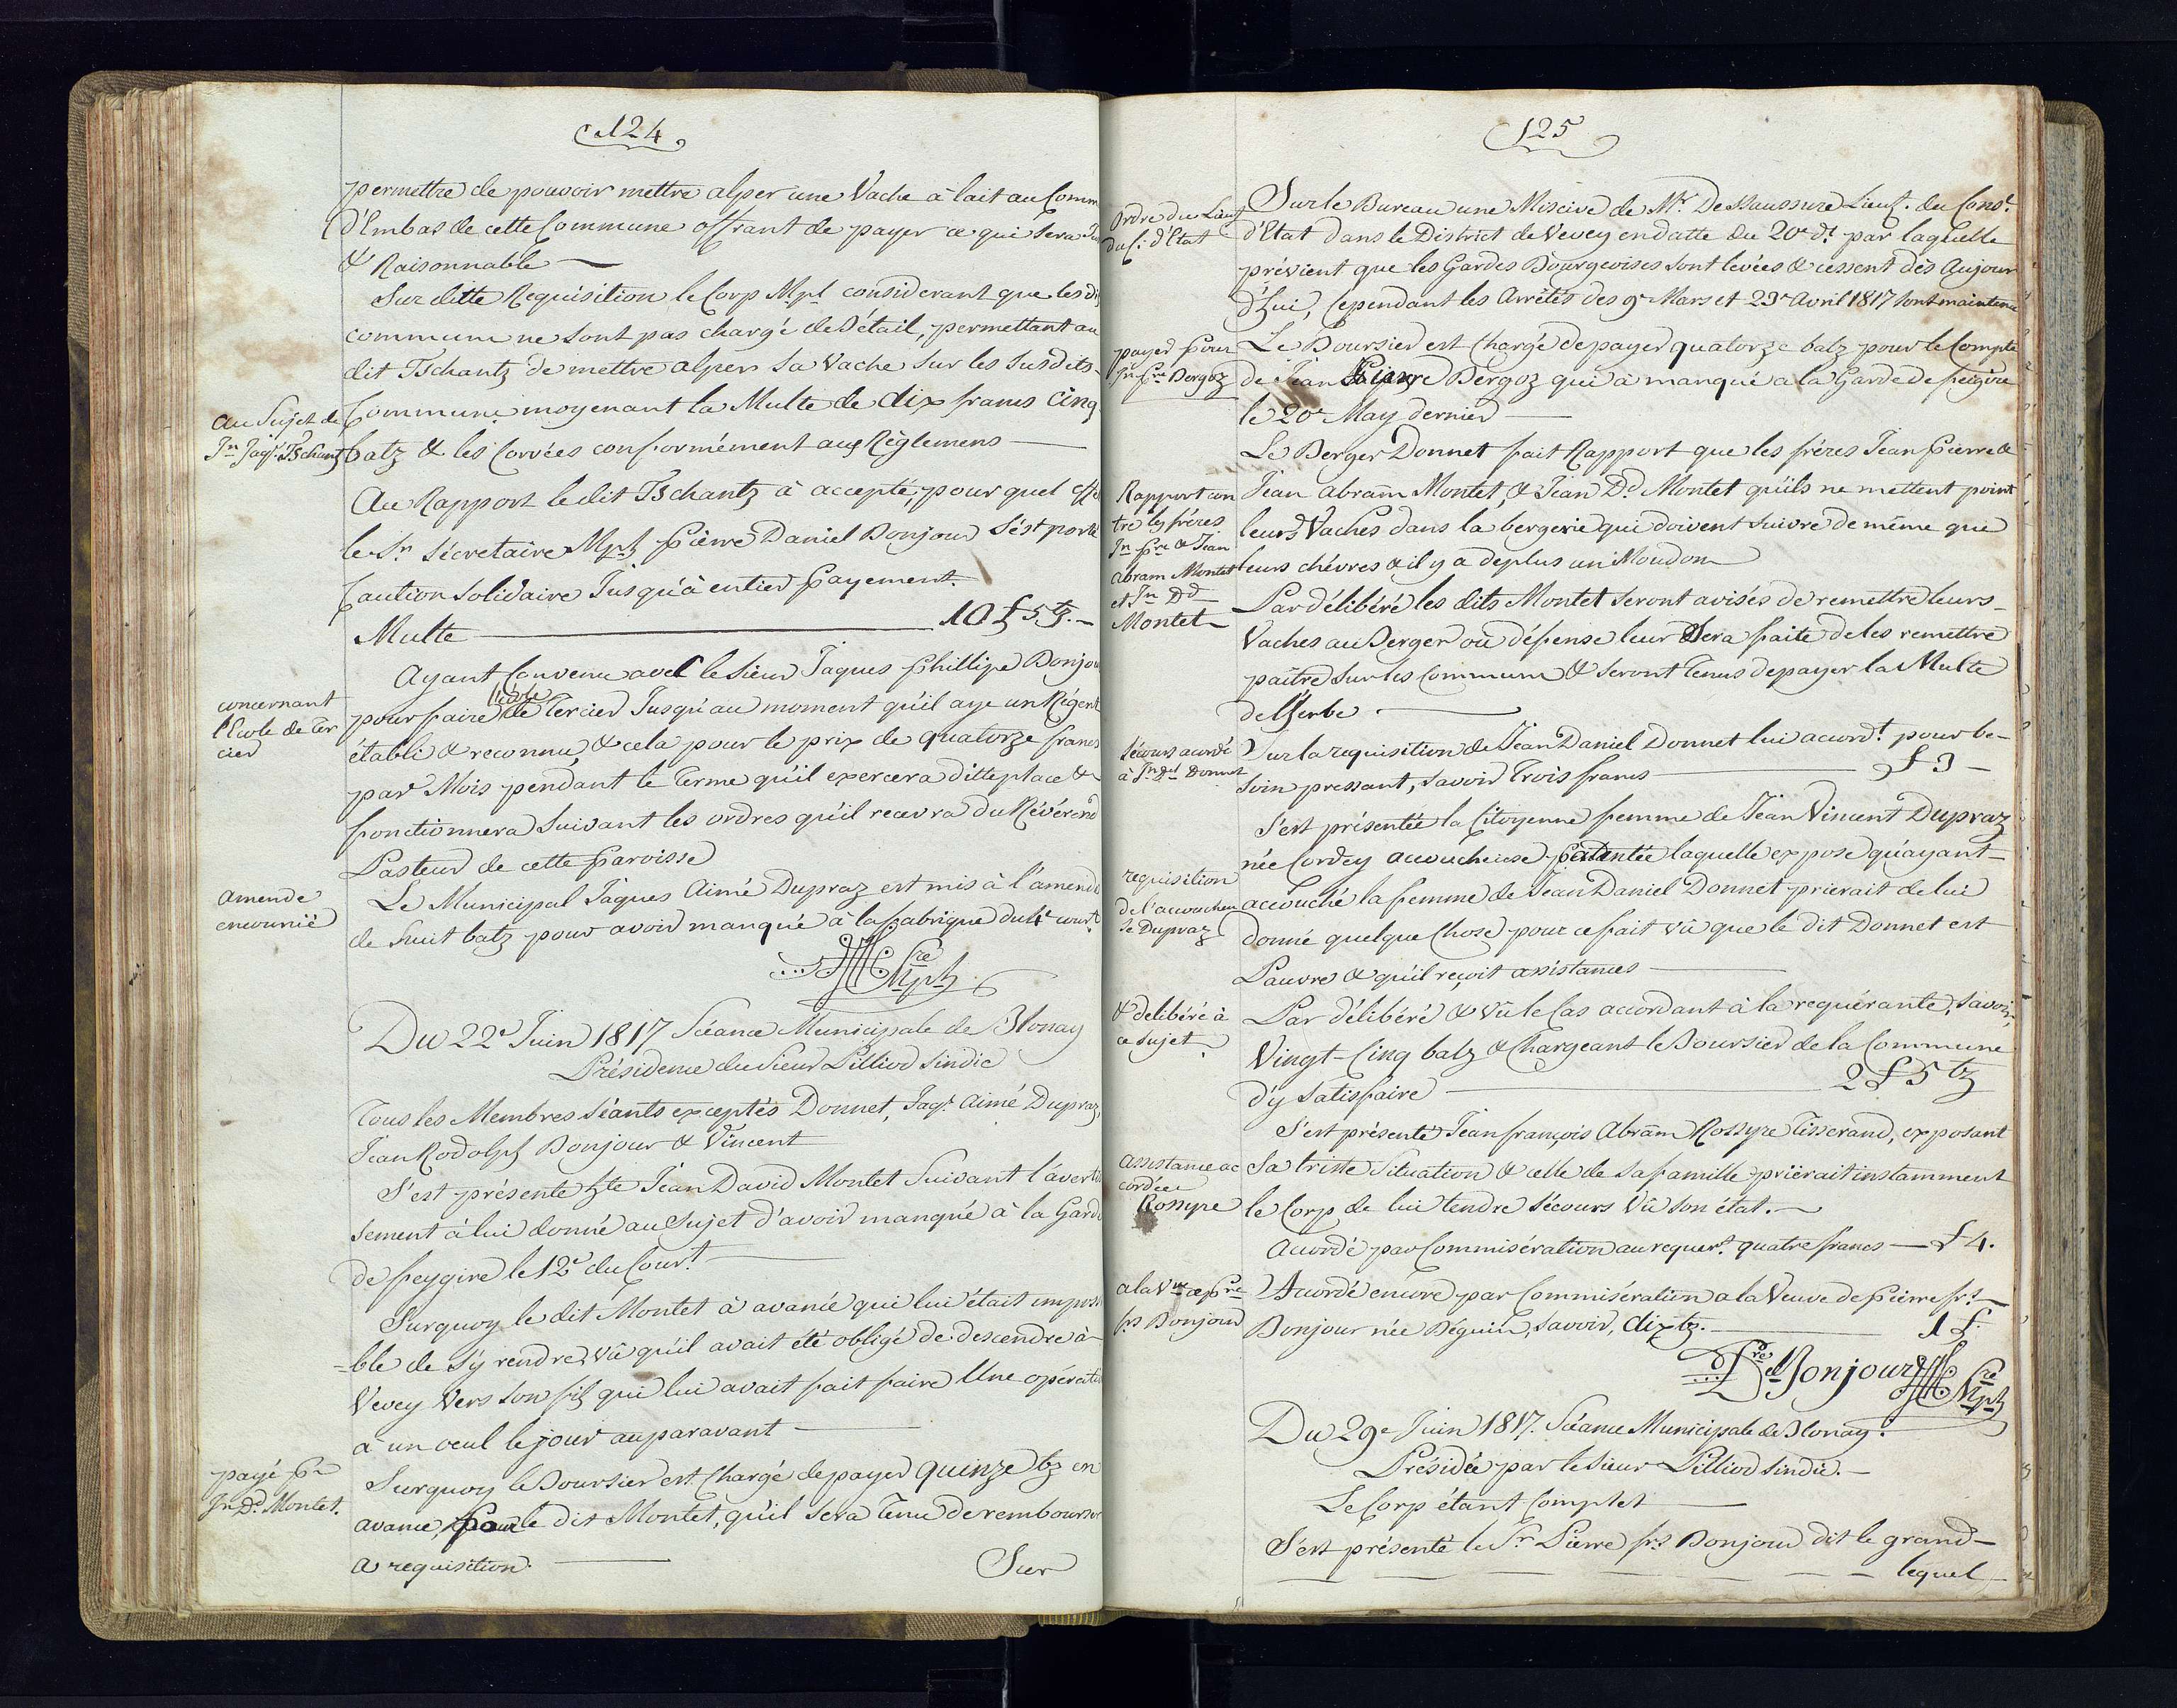 124
permettre de pouvoir mettre alper une Vache à lait au Comm
d'Embas de cette Commune offrant de payer ce qui sera
& Raisonnable
Sur ditte Requisition le Corp Mpl considerant que les di
commun ne sont pas chargé de Bétail, permettant au
dit Tschantz de mettre alper sa Vache sur les susdits
au Sujet de
Jn Jaqs Tschantz
Commune moyenant la Multe de dix francs cinq
batz & les Corvées conformément aux Règlemens
Au Rapport le dit Tschantz à accepté, pour quel effe
le Sr Sécretaire Mpl Pierre Daniel Bonjour s'ést porté
Caution Solidaire Jusqu'à entier payement.
Multe 10 £ 5 tz.
Ayant Convenu avec le Sieur Jaques Phillipe Bonjou
concernant
l'Ecole de Ter
cier
l'école
pour faire de Tercier Jusqu'au moment qu'il aye un Régent
établi & reconnu, & cela pour le prix de quatorze francs
par Mois pendant le Terme qu'il exercera ditte place &
fonctionnera Suivant les ordres qu'il recevra du Révérend
Pasteur de cette Paroisse
amende
encourrie
Le Municipal Jaques Aimé Dupraz est mis à l'amende
de huit batz pour avoir manqué à la fabrique du 4e court
Sre Mpl
Du 22e Juin 1817 Séance Municipale de Blonay
Présidence du Sieur Pilliod Sindic
Tous les Membres Séants exceptés Donnet, Jaqs Aimé Dupraz,
Jean Rodolph Bonjour & Vincent
S'est présente hte Jean David Montet Suivant l'averti
sement à lui donné au Sujet d'avoir manqué à la Garde
de feygire le 12e du Court
Surquoy le dit Montet à avancé qui lui était impossi
-ble de s'y rendre, vû qu'il avait été obligé de descendre à
Vevey Vers son fils qui lui avait fait faire Une opérati
à un oeul le jour auparavant
payé pr
Jn Dd Montet.
Surquoy le Boursier est Chargé de payer quinze bz en
avance, pour le dit Montet, qu'il sera Tenu de rembourser
a requisition.
Sur
125
Ordre du Lieut
du C. d'Etat
Sur le Bureau une Miscive de Mr DeSaussure Lieut. du Const.
d'Etat dans le District de Vevey en datte du 20e dt par laquelle
prévient que les Gardes Bourgeoises sont levées & cessent dès Aujour
d'hui, Cependant les Arrêtés des 9e Mars et 23e Avril 1817 sont maintenu
payer pour
Jn Pre Bergoz
Le Boursier est Chargé de payer quatorze batz pour le Compte
de Jean Pierre Bergoz qui à manqué a la Garde de feigire
le 20e May dernier
Le Berger Donnet fait Rapport que les fréres Jean Pierre &
Rapport con
tre les fréres
Jn Pre & Jean
Abram Montet
et Jn Dd
Montet
Jean Abram Montet, & Jean Dd Montet qu'ils ne mettent point
leurs Vaches dans la bergerie qui doivent suivre de même que
leurs chévres & il y a de plus un Moudon
Par délibéré les dits Montet seront avisés de remettre leurs
Vaches au Berger où défense leur sera faite de les remettre
paître sur les Commun & seront Tenus de payer la Multe
de l'herbe
Sécours acordé
à Jn Dl Donnet
Sur la requisition de Jean Daniel Donnet lui acordt pour be-
soin pressant, savoir Trois francs £ 3
S'est présentée la Citoyenne femme de Jean Vincent Dupraz
née Cordey acoucheuse patentée laquelle expose qu'ayant
requisition
de l'acoucheu
se Dupraz
accouché la femme de Jean Daniel Donnet prierait de lui
donné quelque Chose pour ce fait vû que le dit Donnet est
Pauvre & qu'il reçoit assistances
& delibéré à
ce Sujet
Par délibéré & vû le Cas accordant à la requérante, savoir,
Vingt-Cinq batz & Chargeant le Boursier de la Commune
d'y satisfaire 2 £ 5 tz
S'est présenté Jean françois Abram Rossyre Tisserand, exposant
assistance ac
cordée
Rossyre
Sa triste Situation & celle de sa famille priërait instamment
le Corp de lui tendre sécours Vû son état.
Acordé par Commisération au requert. quatre francs £ 4.
a la Vve de Pre
frs Bonjour
Acordé encore par Commisération a la Veuve de Pierre frs
Bonjour née Déguin, savoir, dix bz. 1 £.
Pre Dl Bonjour Sre Mpl
Du 29e Juin 1817. Séance Municipale de Blonay.
Présidée par le Sieur Pilliod Sindic.
Le Corp étant Complet
S'est présenté le Sr Pierre frs Bonjour dit le grand
lequel